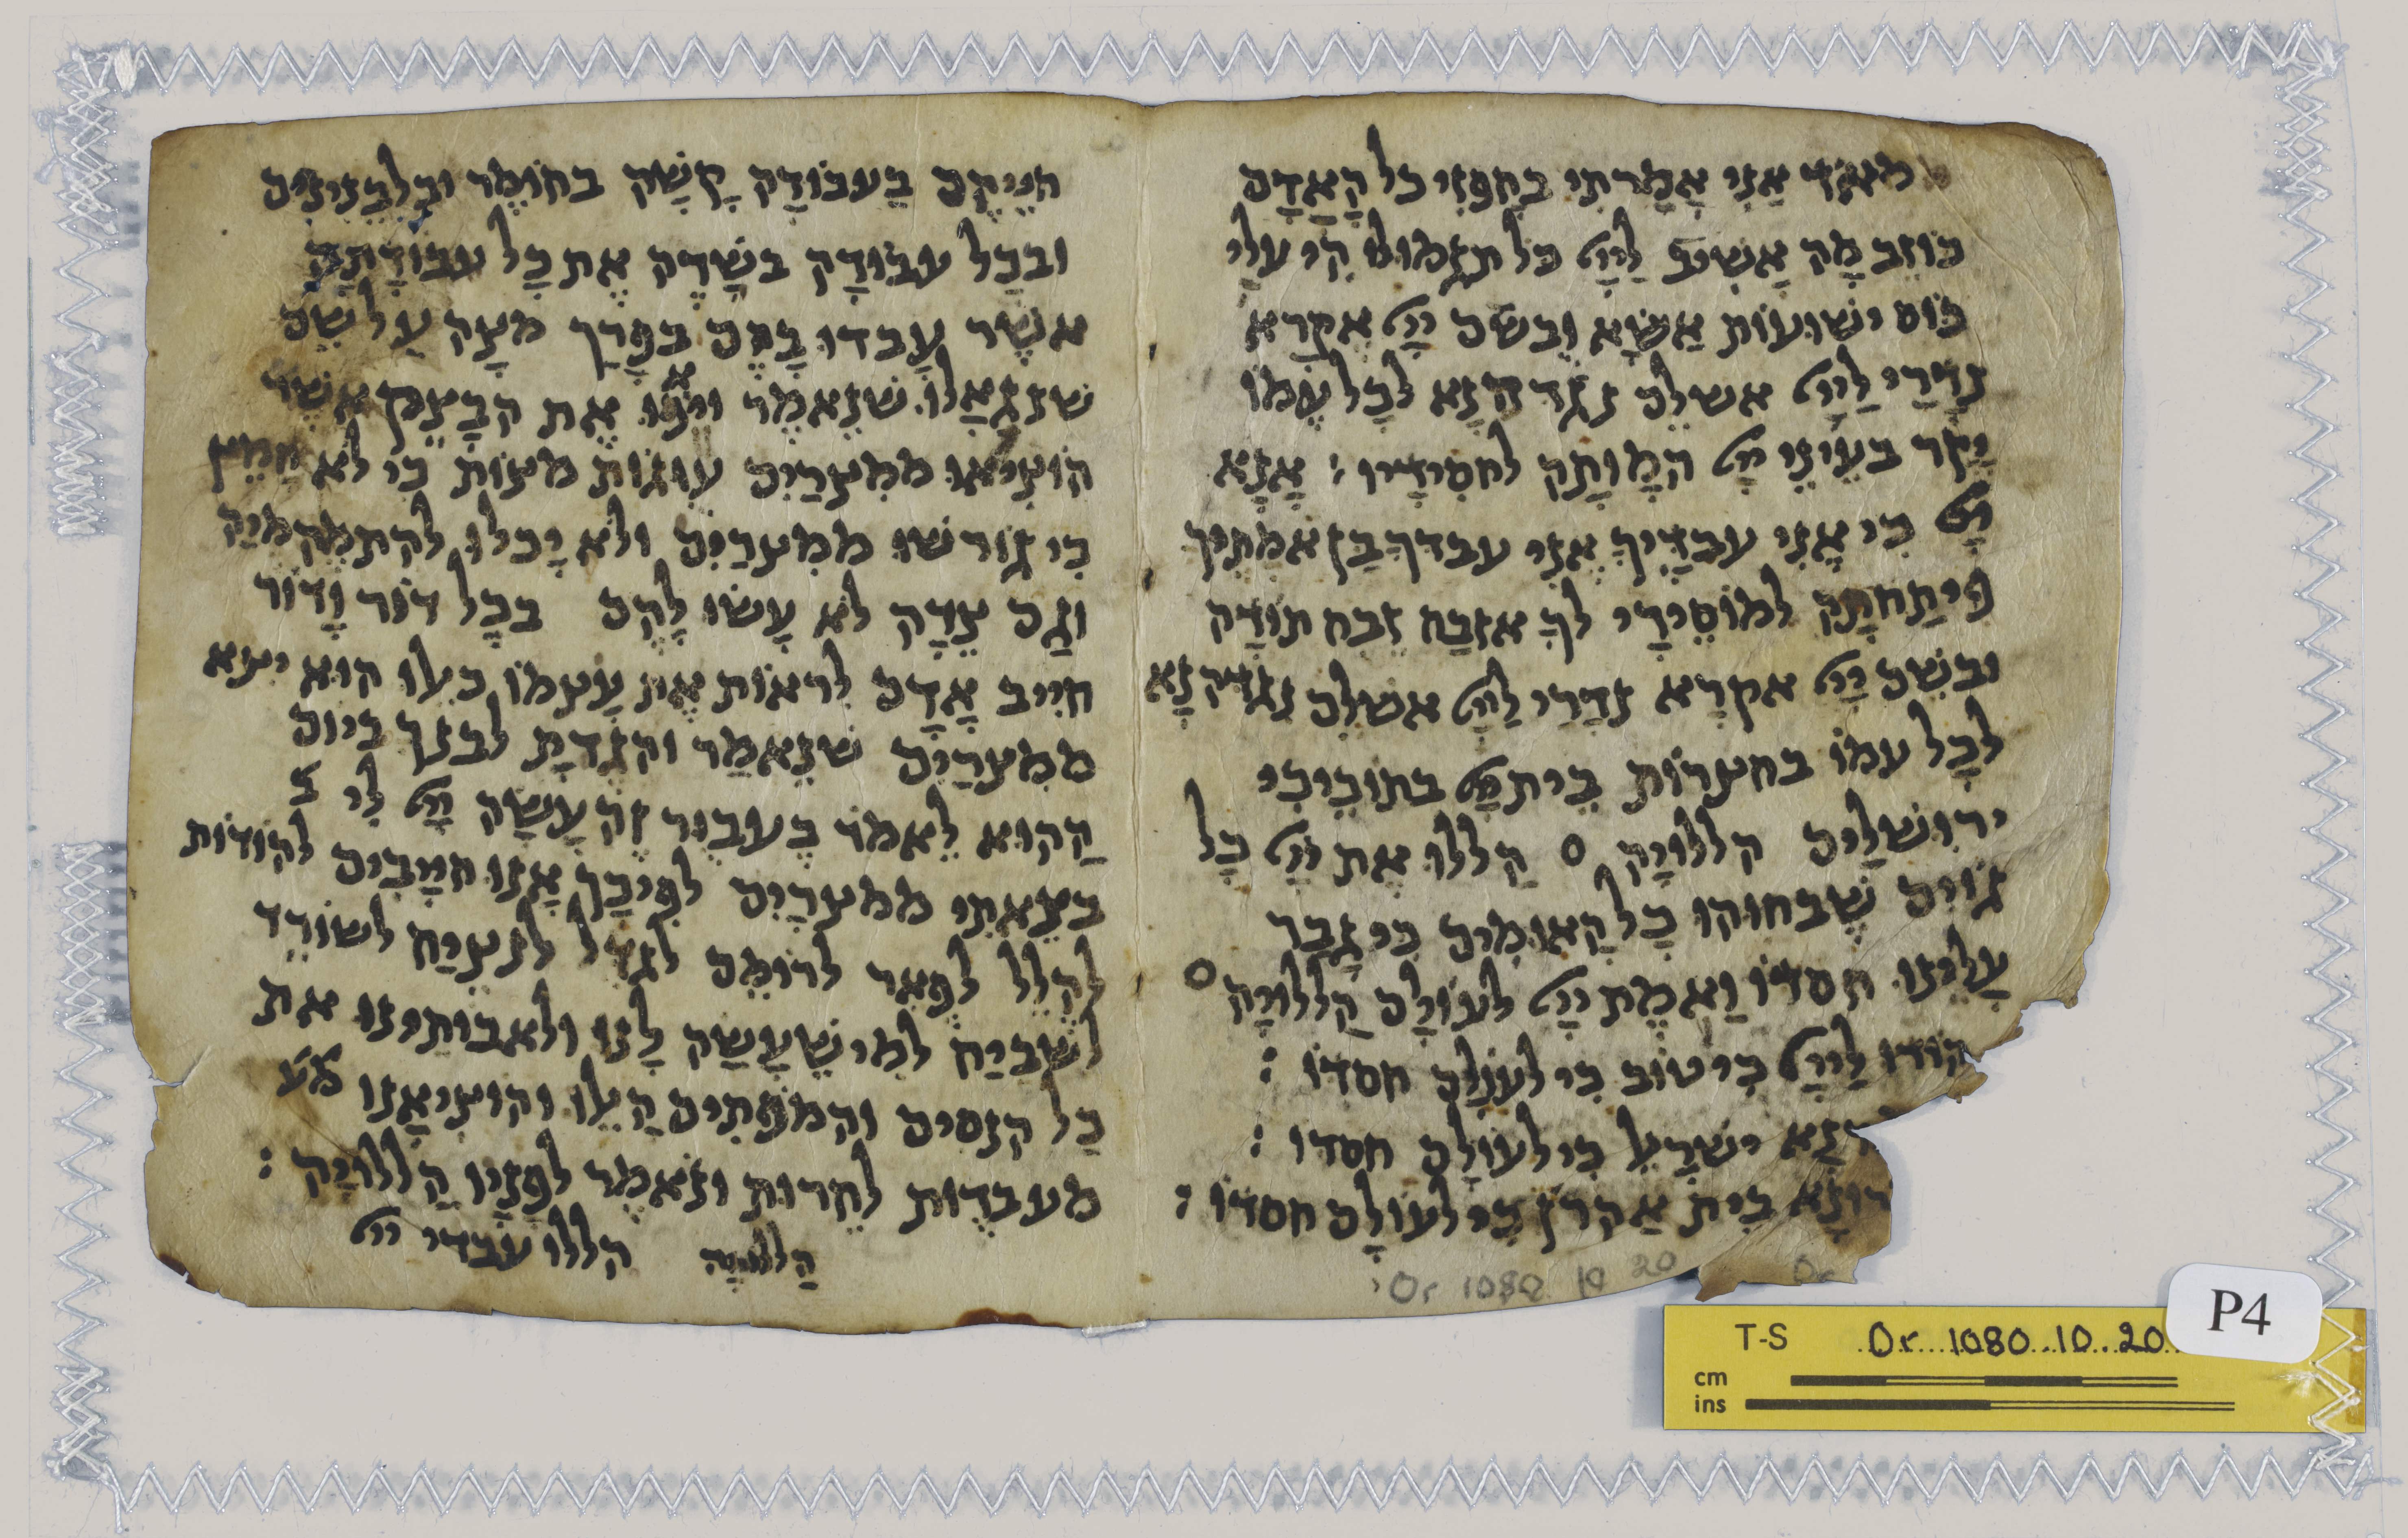 מאד אני אמרתי בחפזי כל האדם
כוזב מה אשיב לייי כל תגמולוהי עלי
כוס ישועות אשא ובשם ייי אקרא
נדרי לייי אשלם נגדה נא לכל עמו
יקר בעיני ייי המותה לחסידיו : אנא
ייי כי אני עבדיך אני עבדך בן אמתיך
פיתחתה למוסירי לך אזבח זבח תודה
ובשם ייי אקרא נדרי לייי אשלם נגדה נא
לכל עמו בחצרות בית ייי בתוכיכי
ירושלים הללויה ס הללו את ייי כל
גוים שבחוהו כל האומים כי גבר
עלינו חסדו ואמת ייי לעולם הללויה ס
הודו לייי כי טוב כי לעולם חסדו :
נא ישראל כי לעולם חסדו :
רו נא בית אהרן כי לעולם חסדו :
Or 1080 10 20
Or
חייהם בעבודה קשה בחומר ובלבינים
ובכל עבודה בשדה את כל עבודתם
אשר עבדו בהם בפרך מצה על שם
שנגאלו שנאמר ויאפו את הבצק אשר
הוציאו ממצרים עוגות מצות כי לא חמץ
כי גורשו ממצרים ולא יכלו להתמהמיה
וגם צדה לא עשו להם בכל דור ודור
חייב אדם לראות את עצמו כאלו הוא יצא
ממצרים שנאמר והגדת לבנך ביום
ההוא לאמר בעבור זה עשה ייי לי
בצאתי ממצרים לפיכך אנו חייבים להודות
להלל לפאר לרומם לגדל לנציח לשורר
לשביח למי שעשה לנו ולאבותינו את
כל הנסים והמופתים האלו והוציאנו
מעבדות לחרות ונאמר לפניו הללויה :
הללויה הללו עבדי ייי
T-S Or 1080 10 20
cm
ins
P4